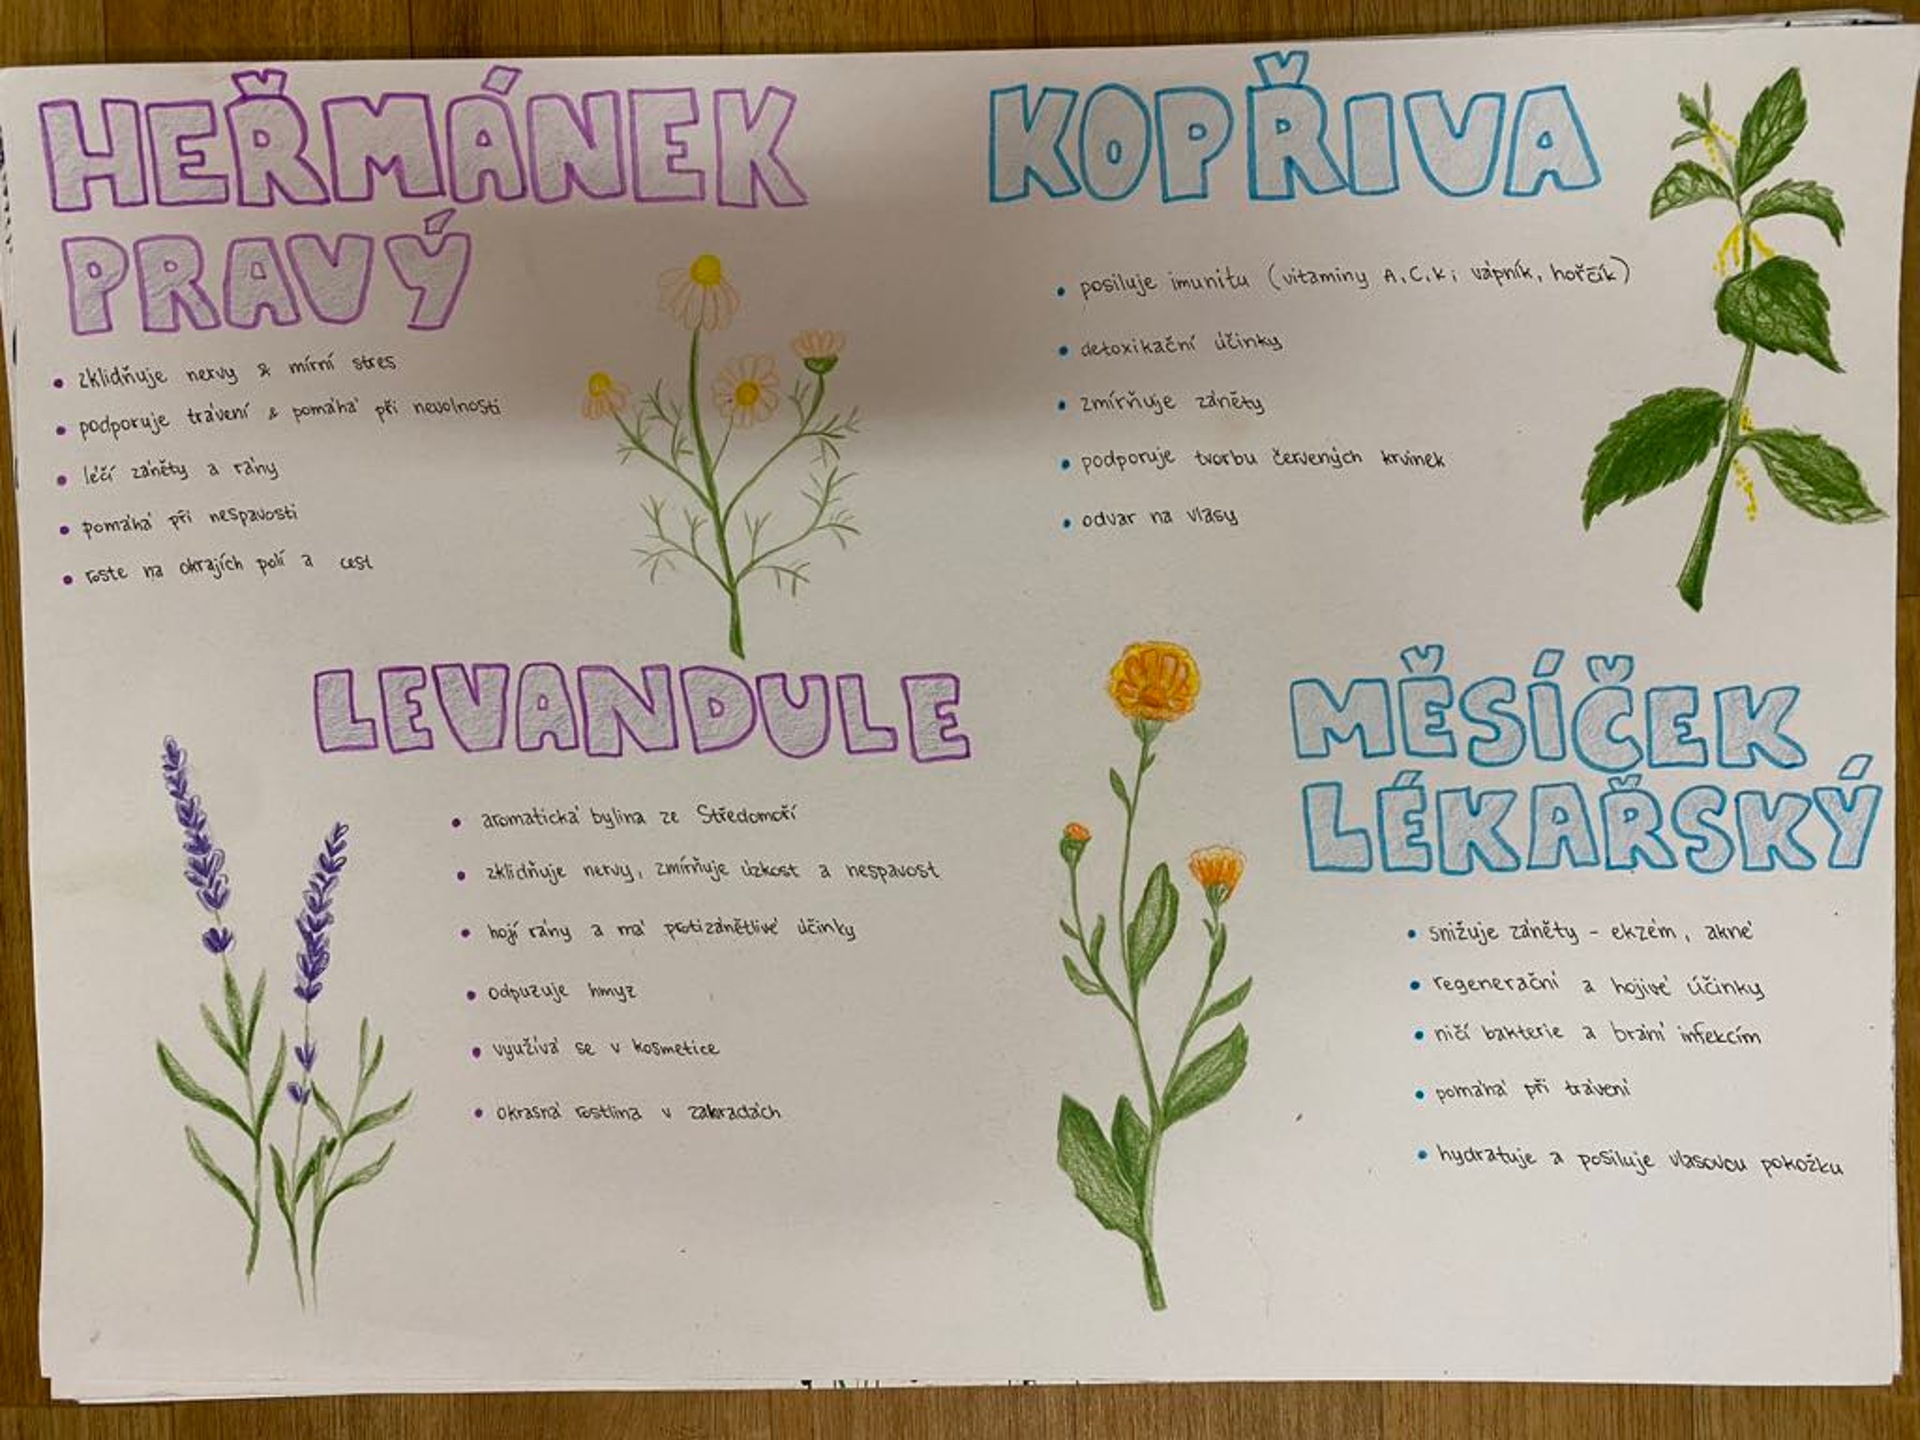 HEŘMÁNEK
PRAVÝ
• zklidňuje nervy & mírní stres
• podporuje trávení & pomáhá při nevolnosti
• léčí záněty a rány
• pomáhá při nespavosti
• roste na okrajích polí a cest
KOPŘIVA
• posiluje imunitu (vitaminy A, C, K; vápník, hořčík)
• detoxikační účinky
• zmírňuje záněty
• podporuje tvorbu červených krvinek
• odvar na vlasy
LEVANDULE
• aromatická bylina ze Středomoří
• zklidňuje nervy, zmírňuje úzkost a nespavost
• hojí rány a má protizánětlivé účinky
• odpuzuje hmyz
• využívá se v kosmetice
• okrasná rostlina v zahradách
MĚSÍČEK
LÉKAŘSKÝ
• snižuje záněty - ekzém, akné
• regenerační a hojivé účinky
• ničí bakterie a brání infekcím
• pomáhá při trávení
• hydratuje a posiluje vlasovou pokožku